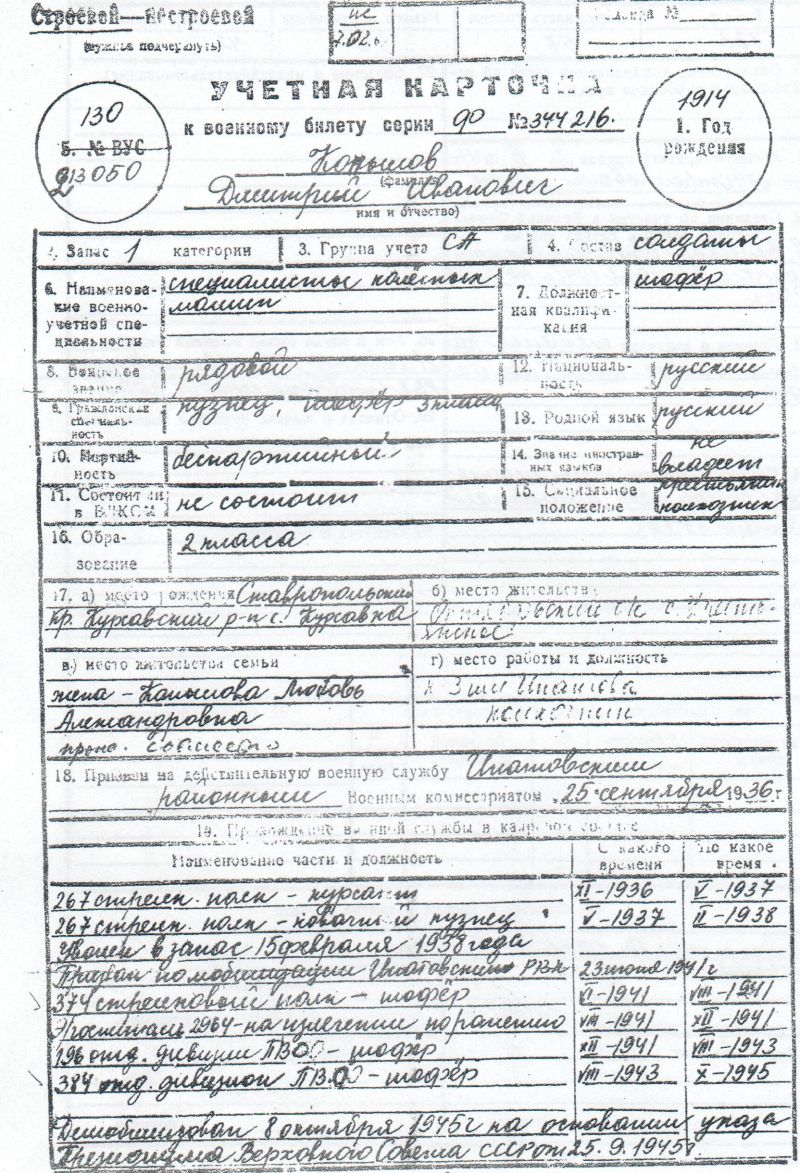 Строевой — нестроевой
(нужное подчеркнуть)
УЧЕТНАЯ КАРТОЧКА
к военному билету серии ДО № 344216.
130
5. № ВУС
913050
1914
1. Год
рождения
Копылов
(фамилия)
Дмитрий Иванович
имя и отчество)
2. Запас 1 категории
3. Группа учета СА
4. Состав солдаты
6. Наименова-
ние военно-
учетной спе-
циальности
специалисты колёсных
машин
7. Должност-
ная квалифи-
кация
шофёр
8. Воинское
звание
рядовой
12. Националь-
ность
русский
9. Гражданская
специаль-
ность
кузнец, шофёр 3 класса
13. Родной язык русский
10. Партий-
ность
беспартийный
14. Знание иностран-
ных языков
не
владеет
11. Состоит ли
в ВЛКСМ
не состоит
15. Социальное
положение
колхозник
16. Обра-
зование
2 класса
17. а) место рождения Ставропольский
кр. Курсавский р-н с. Курсавка
б) место жительства
в) место жительства семьи
жена - Копылова Любовь
Александровна
прож. совместно
г) место работы и должность
к-з им Ипатова
колхозник
18. Призван на действительную военную службу Ипатовским
районным Военным комиссариатом 25 сентября 1936 г
19. Прохождение военной службы в кадровом составе
Наименование части и должность
С какого
времени
По какое
время
267 стрелк. полк - курсант XI-1936 V-1937
267 стрелк. полк - кузнец V-1937 II-1938
Уволен в запас 15 февраля 1938 года
Призван по мобилизации Ипатовским РВК 23 июня 1941 г
374 стрелковый полк - шофёр VI-1941 VIII-1941
Эвогоспиталь 2964 - на излечении по ранению VIII-1941 XII-1941
196 отд. дивизион ПВО - шофёр XII-1941 VIII-1943
384 отд. дивизион ПВО - шофёр VIII-1943 X-1945
Демобилизован 8 октября 1945г на основании указа
Президиума Верховного Совета СССР от 25.9.1945г